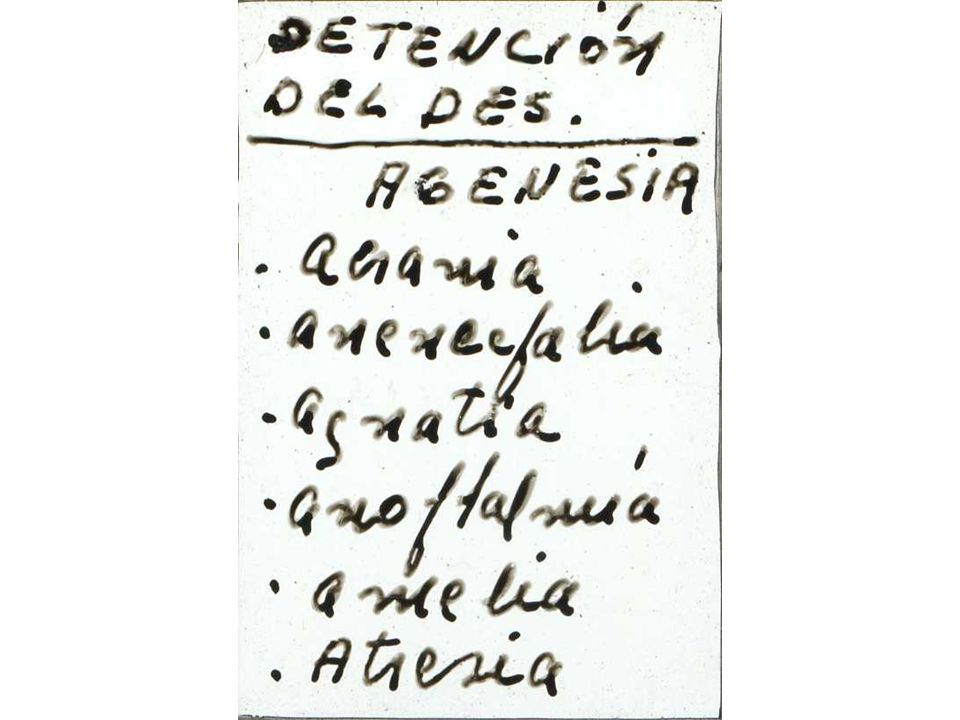 DETENCIÓN
DEL DES.
AGENESIA
. Acrania
. anencefalia
. agnatia
. anoftalmía
. amelia
. Atresia